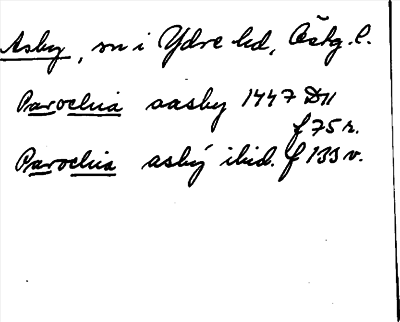 Asby, sn i Ydre hd, Östg. l.
Parochia aasby 1447 D11
f 75 r.
Parochia asbÿ ibid. f 133 v.